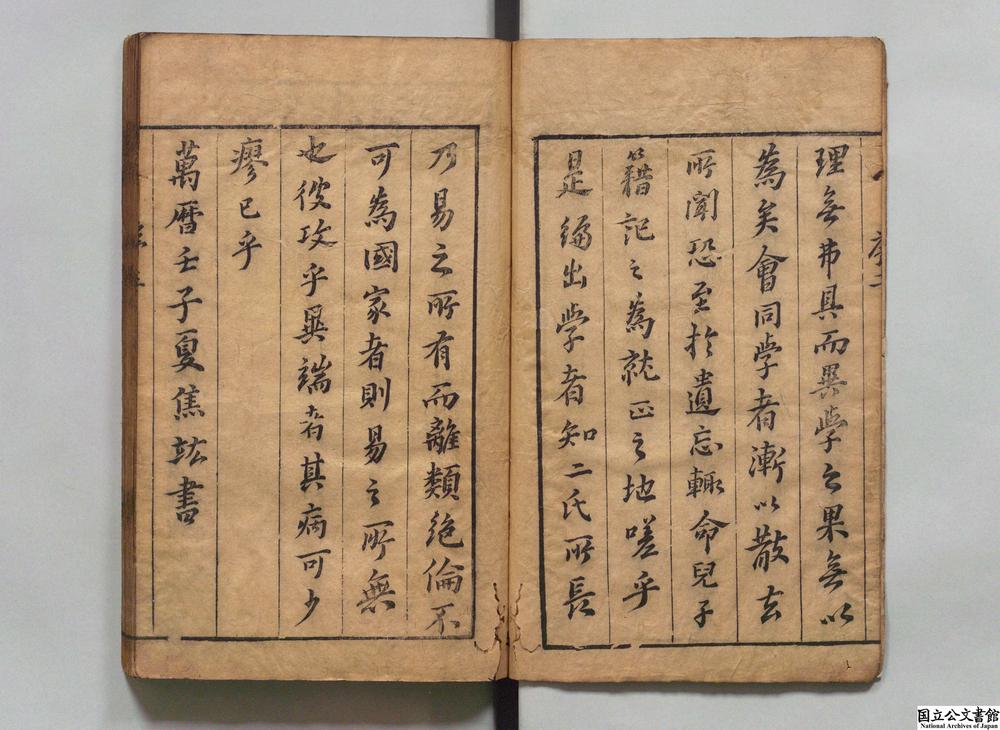 理無弗具而異學之果無以
為矣會同學者漸以散去
所聞恐至於遺忘輙命兒子
籍記之為就正之地嗟乎
是編出学者知二氏所長
乃易之所有而離類絶倫不
可為國家者則易之所無
也彼攻乎異端者其病可少
瘳已乎
萬曆壬子夏焦竑書
国立公文書館
National Archives of Japan